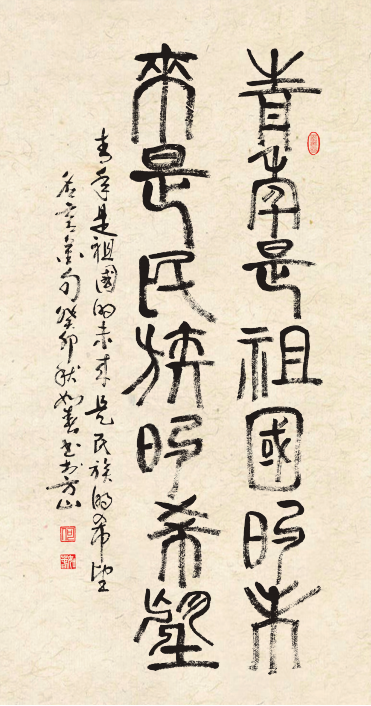 青年是祖國的未
來是民族的希望
青年是祖國的未來是民族的希望
癸卯秋